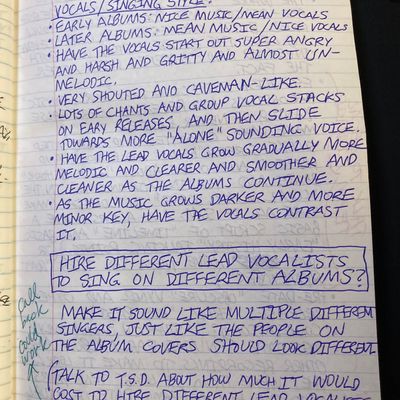 VOCALS/SINGING STYLE:
• EARLY ALBUMS: NICE MUSIC/MEAN VOCALS
• LATER ALBUMS: MEAN MUSIC/NICE VOCALS
• HAVE THE VOCALS START OUT SUPER ANGRY
AND HARSH AND GRITTY AND ALMOST UN-
MELODIC.
• VERY SHOUTED AND CAVEMAN-LIKE.
• LOTS OF CHANTS AND GROUP VOCAL STACKS
ON EARY RELEASES, AND THEN SLIDE
TOWARDS MORE "ALONE" SOUNDING VOICE.
• HAVE THE LEAD VOCALS GROW GRADUALLY MORE
MELODIC AND CLEARER AND SMOOTHER AND
CLEANER AS THE ALBUMS CONTINUE.
• AS THE MUSIC GROWS DARKER AND MORE
MINOR KEY, HAVE THE VOCALS CONTRAST
IT.
HIRE DIFFERENT LEAD VOCALISTS
TO SING ON DIFFERENT ALBUMS?
MAKE IT SOUND LIKE MULTIPLE DIFFEREN
SINGERS, JUST LIKE THE PEOPLE ON
THE ALBUM COVERS SHOULD LOOK DIFFERENT.
(TALK TO T.S.D. ABOUT HOW MUCH IT WOULD
COST TO HIRE DIFFERENT LEAD VOCALISTS
call
back
could
work